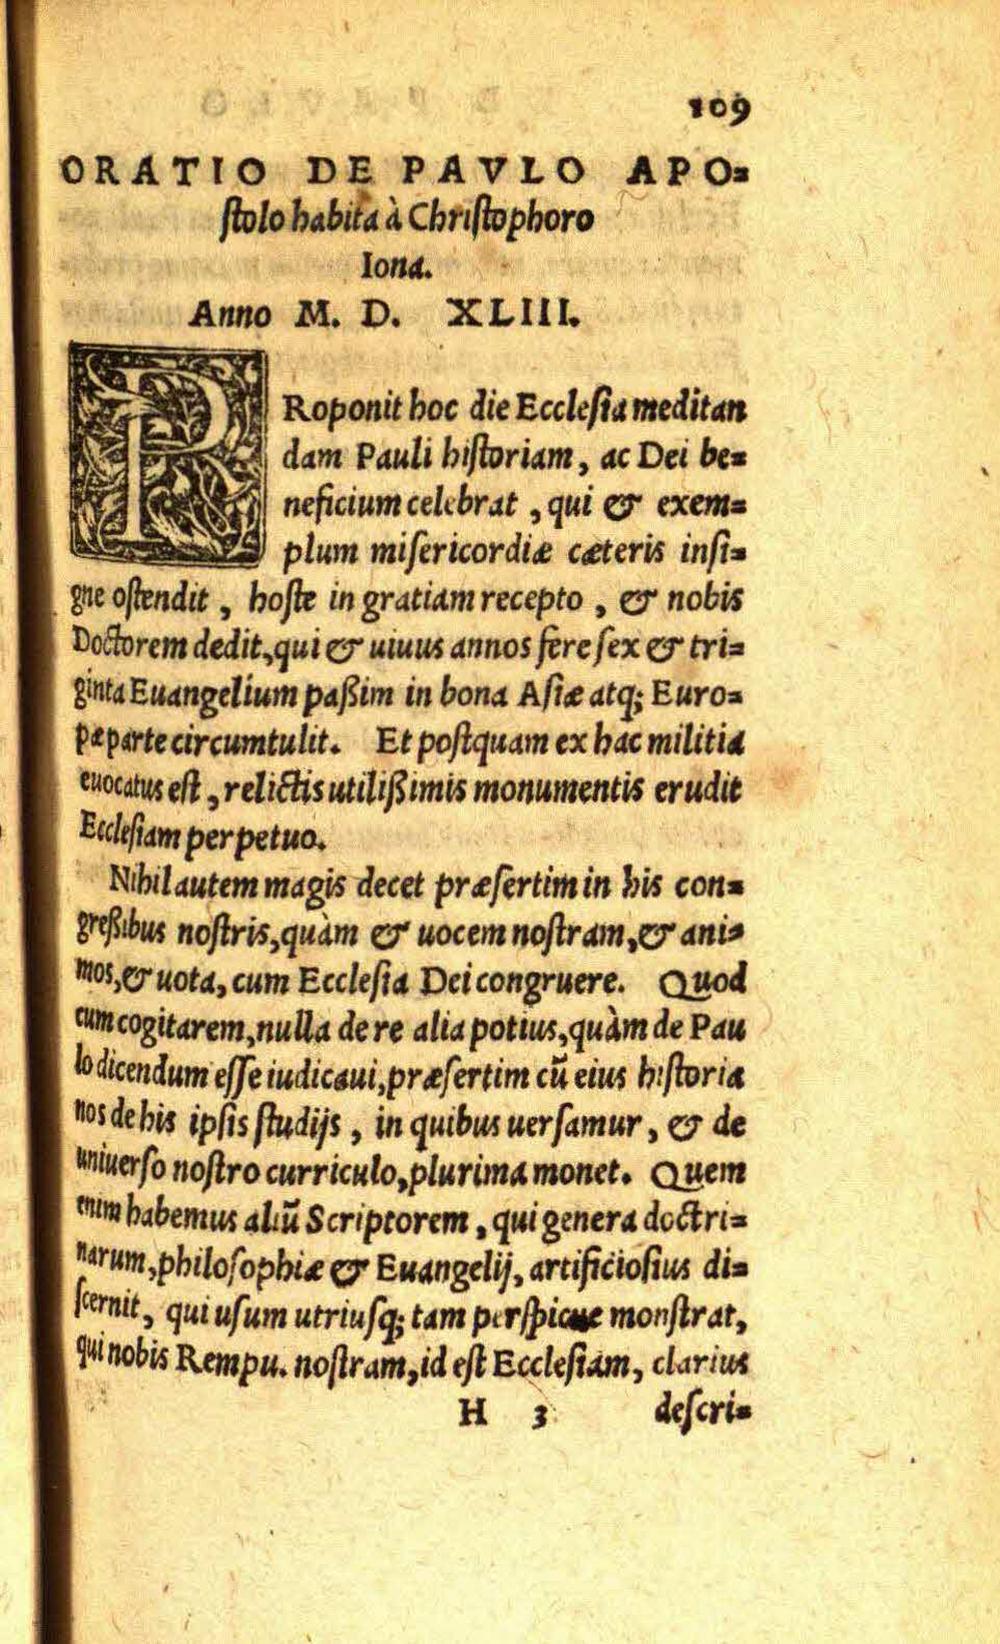 109
ORATIO DE PAVLO APO=
ſtolo habita à Chriſtophoro
Iona.
Anno M. D. XLIII.
PRoponit hoc die Eccleſia meditan
dam Pauli hiſtoriam, ac Dei be=
neficium celebrat, qui & exem=
plum miſericordiæ cæteris inſi=
gne oſtendit, hoſte in gratiam recepto, & nobis
Doctorem dedit, qui & uiuus annos fere ſex & tri=
ginta Euangelium paßim in bona Aſiæ atq; Euro=
pæ parte circumtulit. Et poſtquam ex hac militia
euocatus eſt, relictis utilißimis monumentis erudit
Eccleſiam perpetuo.
Nihil autem magis decet præſertim in his con=
greßibus noſtris, quàm & uocem noſtram, & ani=
mos, & uota, cum Eccleſia Dei congruere. Quod
cum cogitarem, nulla de re alia potius, quàm de Pau
lo dicendum eſſe iudicaui, præſertim cũ eius hiſtoria
nos de his ipſis ſtudijs, in quibus uerſamur, & de
uniuerſo noſtro curriculo, plurima monet. Quem
enim habemus aliũ Scriptorem, qui genera doctri=
narum, philoſophiæ & Euangelij, artificioſius di=
ſcernit, qui uſum utriuſq; tam perſpicue monſtrat,
qui nobis Rempu. noſtram, id eſt Eccleſiam, clarius
H 3 deſcri=